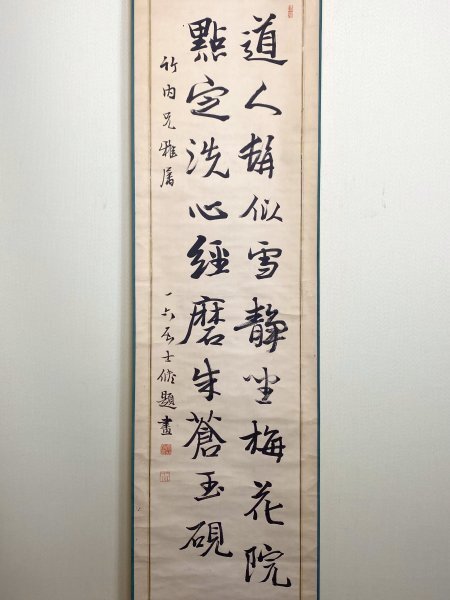 道人鬅似雪靜坐梅花院
點定洗心經磨朱蒼玉硯
竹內兄雅屬
一六居士修題畫